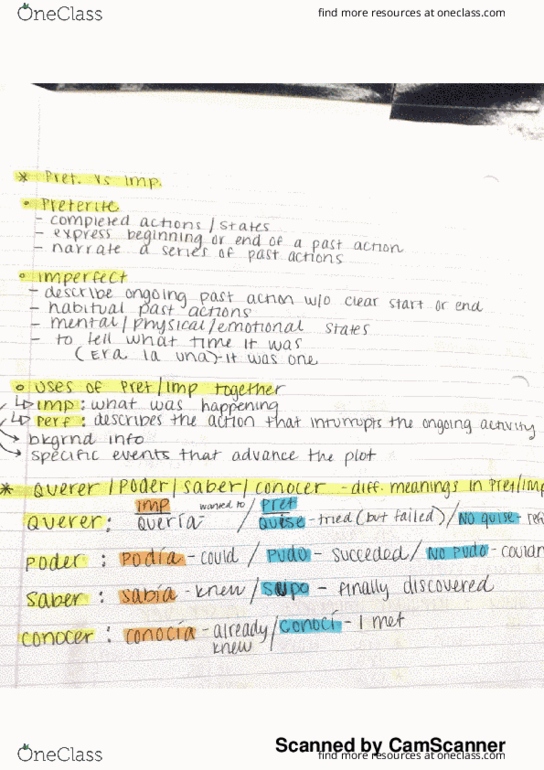 OneClass
find more resources at oneclass.com
* Pret. vs Imp.
• Preterite
- completed actions/states
- express beginning or end of a past action
- narrate a series of past actions
• imperfect
- describe ongoing past action w/o clear start or end
- habitual past actions
- mental/physical/emotional states
- to tell what time it was
(Era la una)-it was one
• uses of Pret/Imp together
↳ imp: what was happening
↳ Perf: describes the action that intrrupts the ongoing activity
→ bkgrnd info
→ specific events that advance the plot
* Querer/Poder/saber/conocer - diff. meanings in Pret/imp
imp wanted to pret
Querer: Quería / Quise-tried (but failed)/No quise-
Poder: Podía-could / Pudo-succeded/No Pudo-
Saber: sabía-knew/supo-finally discovered
conocer: conocía-already/conocí-I met
knew
Scanned by CamScanner
OneClass
find more resources at oneclass.com